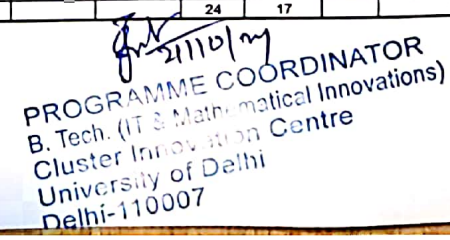 24 17
21/10/24
PROGRAMME COORDINATOR
B. Tech. (IT & Mathematical Innovations)
Cluster Innovation Centre
University of Delhi
Delhi-110007